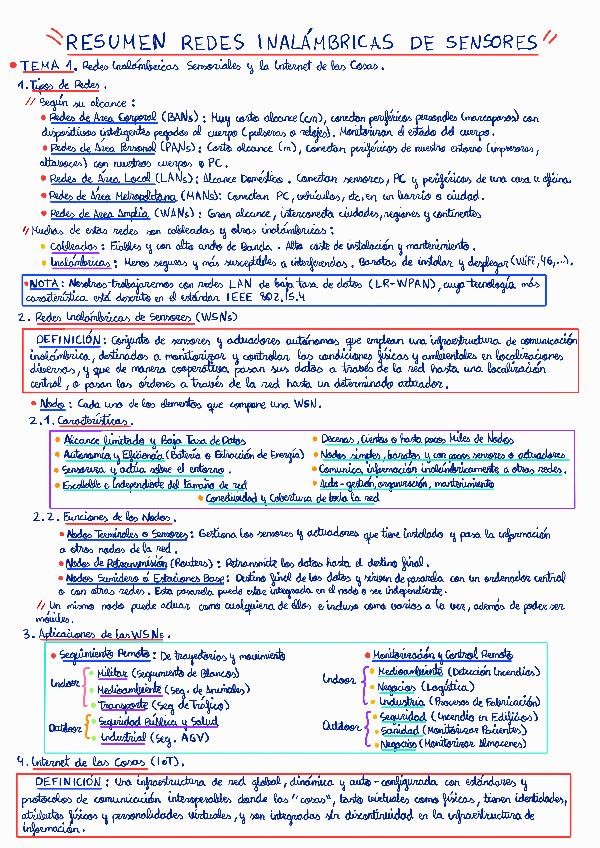 "RESUMEN REDES INALÁMBRICAS DE SENSORES"
• TEMA 1. Redes Inalámbricas Sensoriales y la Internet de las Cosas.
1. Tipos de Redes.
// Según su alcance:
• Redes de Area Corporal (BANs): Muy corto alcance (cm), conectan periféricos personales (marcapasos) con
dispositivos inteligentes pegados al cuerpo (pulseras o relojes). Monitorizan el estado del cuerpo.
• Redes de Area Personal (PANs): Corto alcance (m), Conectan periféricos de nuestro entorno (impresoras,
altavoces) con nuestros cuerpos o PC.
• Redes de Area Local (LANs): Alcance Doméstico. Conectan sensores, PC y periféricos de una casa u oficina.
• Redes de Area Metropolitana (MANs): Conectan PC, vehículos, etc, en un barrio o ciudad.
• Redes de Area Amplia (WANs): Gran alcance, interconecta ciudades, regiones y continentes
// Muchas de estas redes son cableadas y otras inalámbricas:
• Cableadas: Fiables y con alto ancho de Banda. Alto coste de instalación y mantenimiento.
• Inalámbricas: Menos seguras y más susceptibles a interferencias. Baratas de instalar y desplegar (WiFi, 4G,...).
• NOTA: Nosotros trabajaremos con redes LAN de baja tasa de datos (LR-WPAN), cuya tecnología más
característica está descrita en el estándar IEEE 802.15.4
2. Redes Inalámbricas de Sensores (WSNs)
DEFINICIÓN: Conjunto de sensores y actuadores autónomos que emplean una infraestructura de comunicación
inalámbrica, destinados a monitorizar y controlar las condiciones físicas y ambientales en localizaciones
diversas, y que de manera cooperativa, pasan sus datos a través de la red hasta una localización
central, o pasan las órdenes a través de la red hasta un determinado actuador.
• Nodo: Cada uno de los elementos que compone una WSN.
2.1. Características.
• Alcance limitado y Baja Tasa de Datos • Decenas, Cientos o hasta pocos Miles de Nodos
• Autonomía y Eficiencia (Batería o Extracción de Energía) • Nodos simples, baratos y con pocos sensores o actuadores
• Sensoriza y actúa sobre el entorno. • Comunica información inalámbricamente a otras redes.
• Escalable e Independiente del tamaño de red • Auto-gestión, organización, mantenimiento
• Conectividad y Cobertura de toda la red
2.2. Funciones de los Nodos.
• Nodos Terminales o Sensores: Gestiona los sensores y actuadores que tiene instalado y pasa la información
a otros nodos de la red.
• Nodos de Retransmisión (Routers): Retransmite los datos hasta el destino final.
• Nodos Sumidero ó Estaciones Base: Destino final de los datos y sirven de pasarela con un ordenador central
o con otras redes. Esta pasarela puede estar integrada en el nodo o ser independiente.
// Un mismo nodo puede actuar como cualquiera de ellos e incluso como varios a la vez, además de poder ser
móviles.
3. Aplicaciones de las WSNs.
• Seguimiento Remoto: De trayectorias y movimiento • Monitorización y Control Remoto
Indoor • Militar (Seguimiento de Blancos) Indoor • Medioambiente (Detección Incendios)
• Medioambiente (Seg. de Animales) • Negocios (Logística)
• Transporte (Seg de Tráfico) • Industria (Procesos de Fabricación)
Outdoor • Seguridad Pública y Salud Outdoor • Seguridad (Incendio en Edificios)
• Industrial (Seg. AGV) • Sanidad (Monitorizar Pacientes)
• Negocios (Monitorizar Almacenes)
4. Internet de las Cosas (IoT).
DEFINICIÓN: Una infraestructura de red global, dinámica y auto-configurada con estándares y
protocolos de comunicación interoperables donde las "cosas", tanto virtuales como físicas, tienen identidades,
atributos físicos y personalidades virtuales, y son integradas sin discontinuidad en la infraestructura de
información.